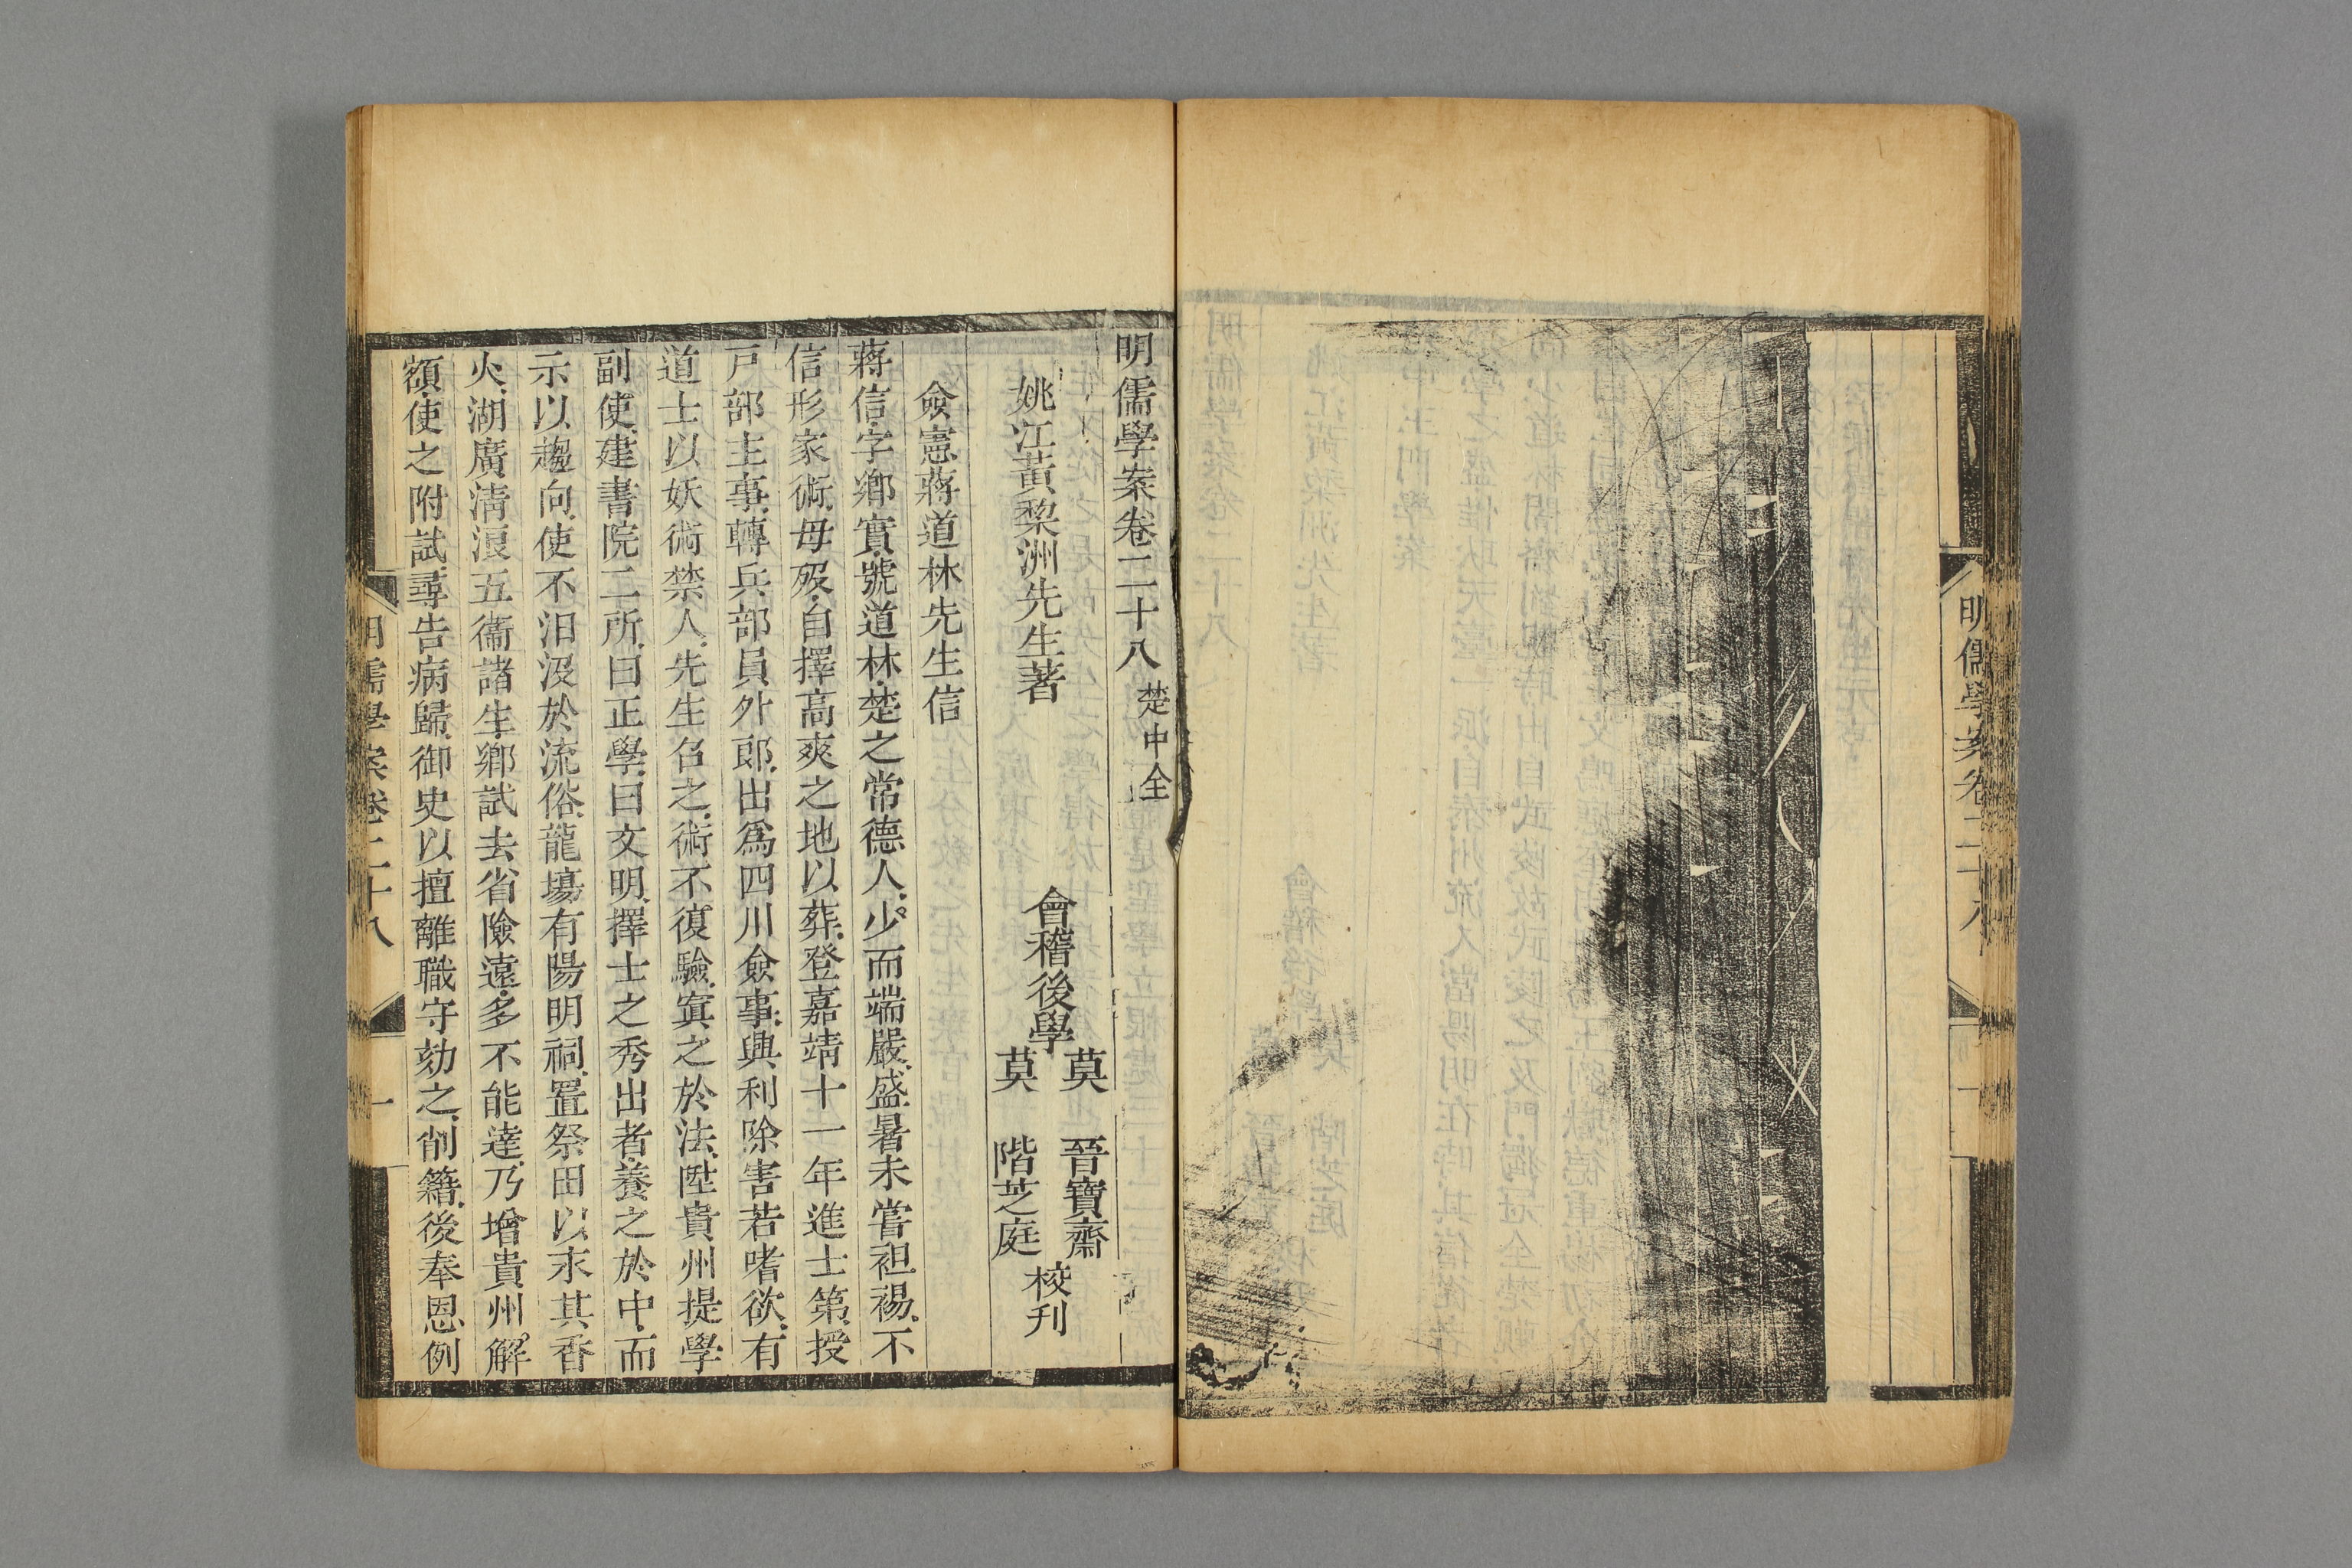 明儒學案卷二十八
明儒學案卷二十八 楚中全
姚江黃棃洲先生著
會稽後學
莫 晉寶齋
莫 階芝庭
校刊
僉憲蔣道林先生信
蔣信字鄉實號道林楚之常德人少而端嚴盛暑未嘗袒裼不
信形家術毋歿自擇高爽之地以葬登嘉靖十一年進士第授
戸部主事轉兵部員外郎出爲四川僉事興利除害若嗜欲有
道士以妖術禁人先生召之術不復驗寘之於法陞貴州提學
副使建書院二所曰正學曰文明擇士之秀出者養之於中而
示以趨向使不汨沒於流俗龍塲有陽明祠置祭田以永其香
火湖廣清浪五衞諸生鄉試去省險遠多不能達乃增貴州解
額使之附試尋告病歸御史以擅離職守劾之削籍後奉恩例
明儒學案卷二十八
一